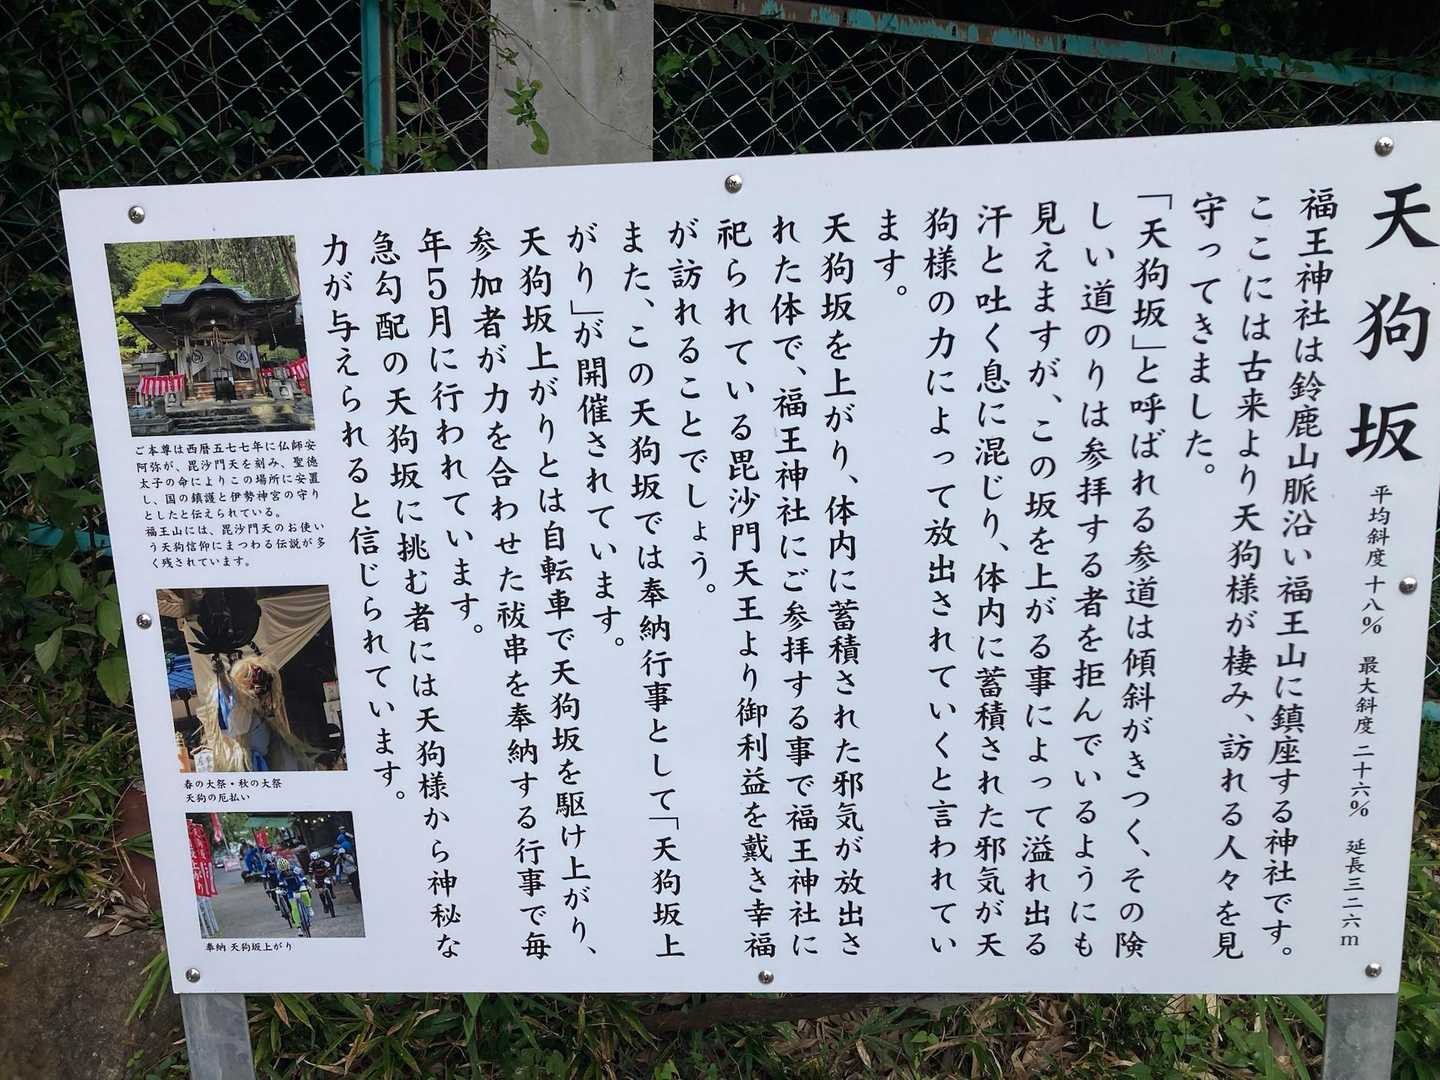 天狗坂
平均斜度 十八% 最大斜度 二十六% 延長三二六m
福王神社は鈴鹿山脈沿い福王山に鎮座する神社です。
ここには古来より天狗様が棲み、訪れる人々を見
守ってきました。
「天狗坂」と呼ばれる参道は傾斜がきつく、その険
しい道のりは参拝する者を拒んでいるようにも
見えますが、この坂を上がる事によって溢れ出る
汗と吐く息に混じり、体内に蓄積された邪気が天
狗様の力によって放出されていくと言われてい
ます。
天狗坂を上がり、体内に蓄積された邪気が放出さ
れた体で、福王神社にご参拝する事で福王神社に
祀られている毘沙門天王より御利益を戴き幸福
が訪れることでしょう。
また、この天狗坂では奉納行事として「天狗坂上
がり」が開催されています。
天狗坂上がりとは自転車で天狗坂を駆け上がり、
参加者が力を合わせた祓串を奉納する行事で毎
年5月に行われています。
急勾配の天狗坂に挑む者には天狗様から神秘な
力が与えられると信じられています。
ご本尊は西暦五七七年に仏師安
阿弥が、毘沙門天を刻み、聖徳
太子の命によりこの場所に安置
し、国の鎮護と伊勢神宮の守り
としたと伝えられている。
福王山には、毘沙門天のお使い
う天狗信仰にまつわる伝説が多
く残されています。
春の大祭・秋の大祭
天狗の厄払い
奉納 天狗坂上がり